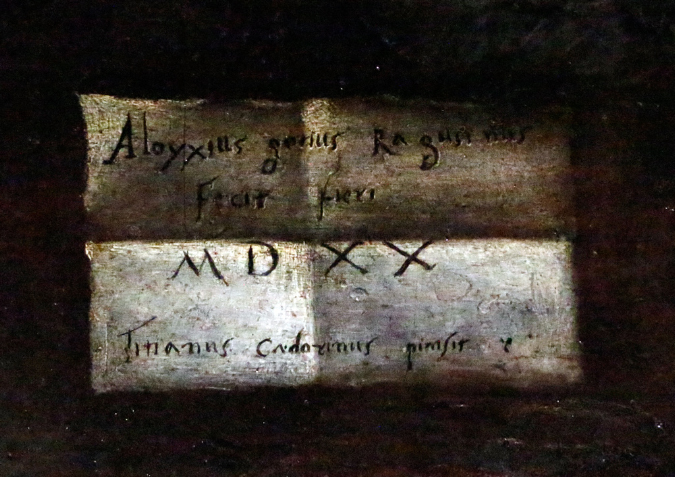 Aloyxius gotius Ragusinus
Fecit fieri
MDXX
Titianus Cadorinus pinsit